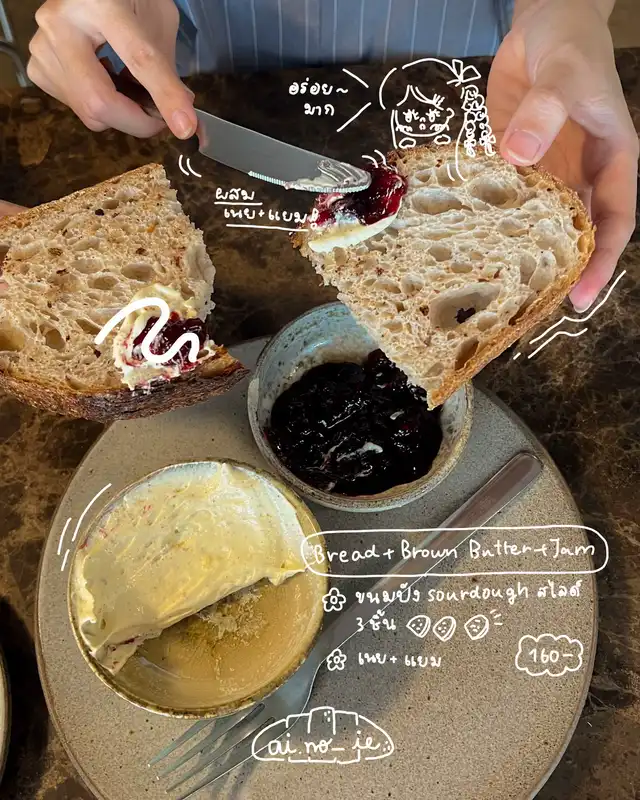 อร่อย~
มาก
ผสม
เนย+แยม!
Bread + Brown Butter + Jam
ขนมปัง sourdough สไลด์
3 ชิ้น
เนย + แยม
160-
ai.no_ie